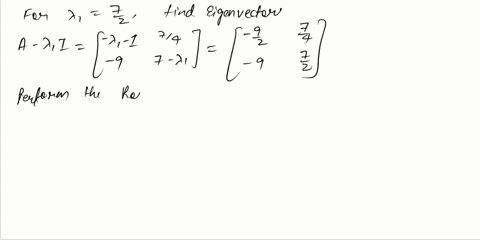 For λ₁ = 7/2, find Eigenvector
A - λ₁ I = [-λ₁-1 7/4; -9 7-λ₁] = [-9/2 7/4; -9 7/2]
Perform the Ro